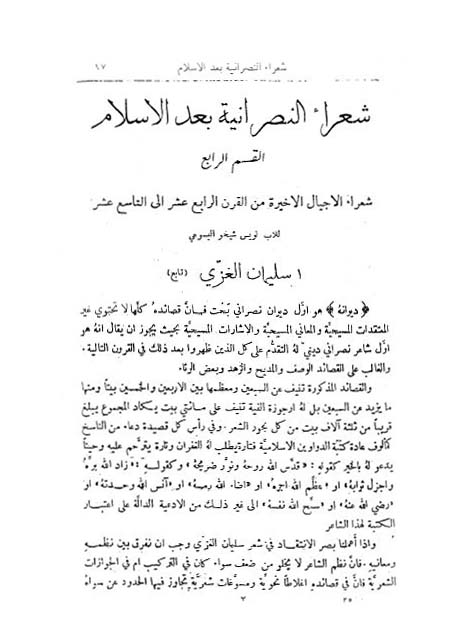 شعراء النصرانية بعد الاسلام ٦٧
شعراء النصرانية بعد الاسلام
القسم الرابع
شعراء الاجيال الاخيرة من القرن الرابع عشر الى التاسع عشر
للاب لويس شيخو اليسوعي
١ سليمان الغزّي (تابع)
﴿ ديوانهُ ﴾ هو اوَّل ديوان نصراني بَحْت فانَّ قصائدهُ كلّها لا تحتوي غير
المعتقدات المسيحيَّة والمعاني المسيحيَّة والاشارات المسيحيَّة بحيث يجوز ان يقال انهُ هو
اوَّل شاعر نصراني دينيّ لهُ التقدُّم على كل الذين ظهروا بعد ذلك في القرون التالية.
والغالب على القصائد الوصف والمديح والزهد وبعض الرثاء
والقصائد المذكورة تنيف عن السبعين ومعظمها بين الاربعين والخمسين بيتاً ومنها
ما يزيد عن السبعين بل لهُ ارجوزة الفية تنيف على مائتي بيت يـكاد المجموع يبلغ
قريباً من ثلثة آلاف بيت من كل بحور الشعر. وفي رأس كل قصيدة دعاء من الناسخ
كمألوف عادة كتبة الدواوين الاسلاميَّة فتارة يطلب لهُ الغفران وتارة يترحَّم عليهِ وحيناً
يدعو لهُ بالخير كقولهِ: «قدَّس الله روحهُ ونوَّر ضريحهُ» وكقولـهِ: «زاد الله برَّهُ
واجزل ثوابهُ» او «عظَّم الله اجرهُ» او «اضاء الله رمسهُ» او «آنس الله وحدتهُ» او
«رضي الله عنهُ» او «سبَّح الله نفسهُ» الى غير ذلـك من الادعية الدالَّة على اعتبار
الكتبة لهذا الشاعر
واذا أعملنا بصر الانتقاد في شعر سليمان الغزّي وجب ان نفرق بين نظمـهِ
ومعانيهِ. فانَّ نظم الشاعر لا يخلو من ضعف سواء كان في التركيب ام في الجوازات
الشعريَّة فانَّ في قصائدهِ اغلاطاً نحويَّة ومسوّغات شعريَّة يتجاوز فيها الحدود عن سواهُ